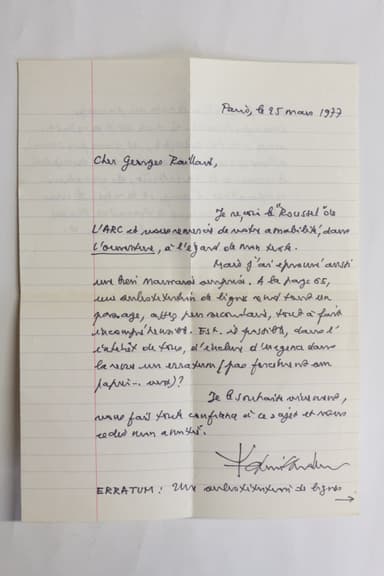 Paris, le 25 mars 1977
Cher Georges Raillard,
Je reçois le "Roussel" de
L'ARC et vous remercie de votre amabilité, dans
l'ouverture, à l'égard de mon texte.
Mais j'ai éprouvé aussi
une bien mauvaise surprise. A la page 65,
une substitution de lignes rend tout un
passage, assez peu secondaire, tout à fait
incompréhensible. Est-il possible, dans l'
intérêt de tous, d'inclure d'urgence dans
la revue un erratum (pas forcément sur
papier... vert)?
Je le souhaite vivement,
vous fais toute confiance à ce sujet et vous
redis mon amitié.
ERRATUM: Une substitution de lignes
→